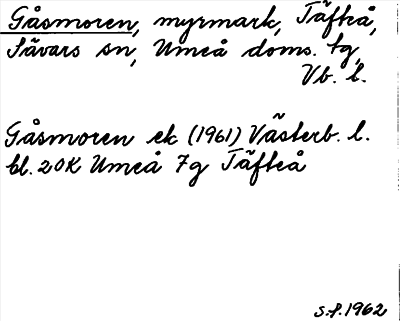 Gåsmoren, myrmark, Täfteå,
Sävars sn, Umeå doms. tg,
Vb. l.
Gåsmoren ek (1961) Västerb. l.
bl. 20K Umeå 7g Täfteå
s.f. 1962